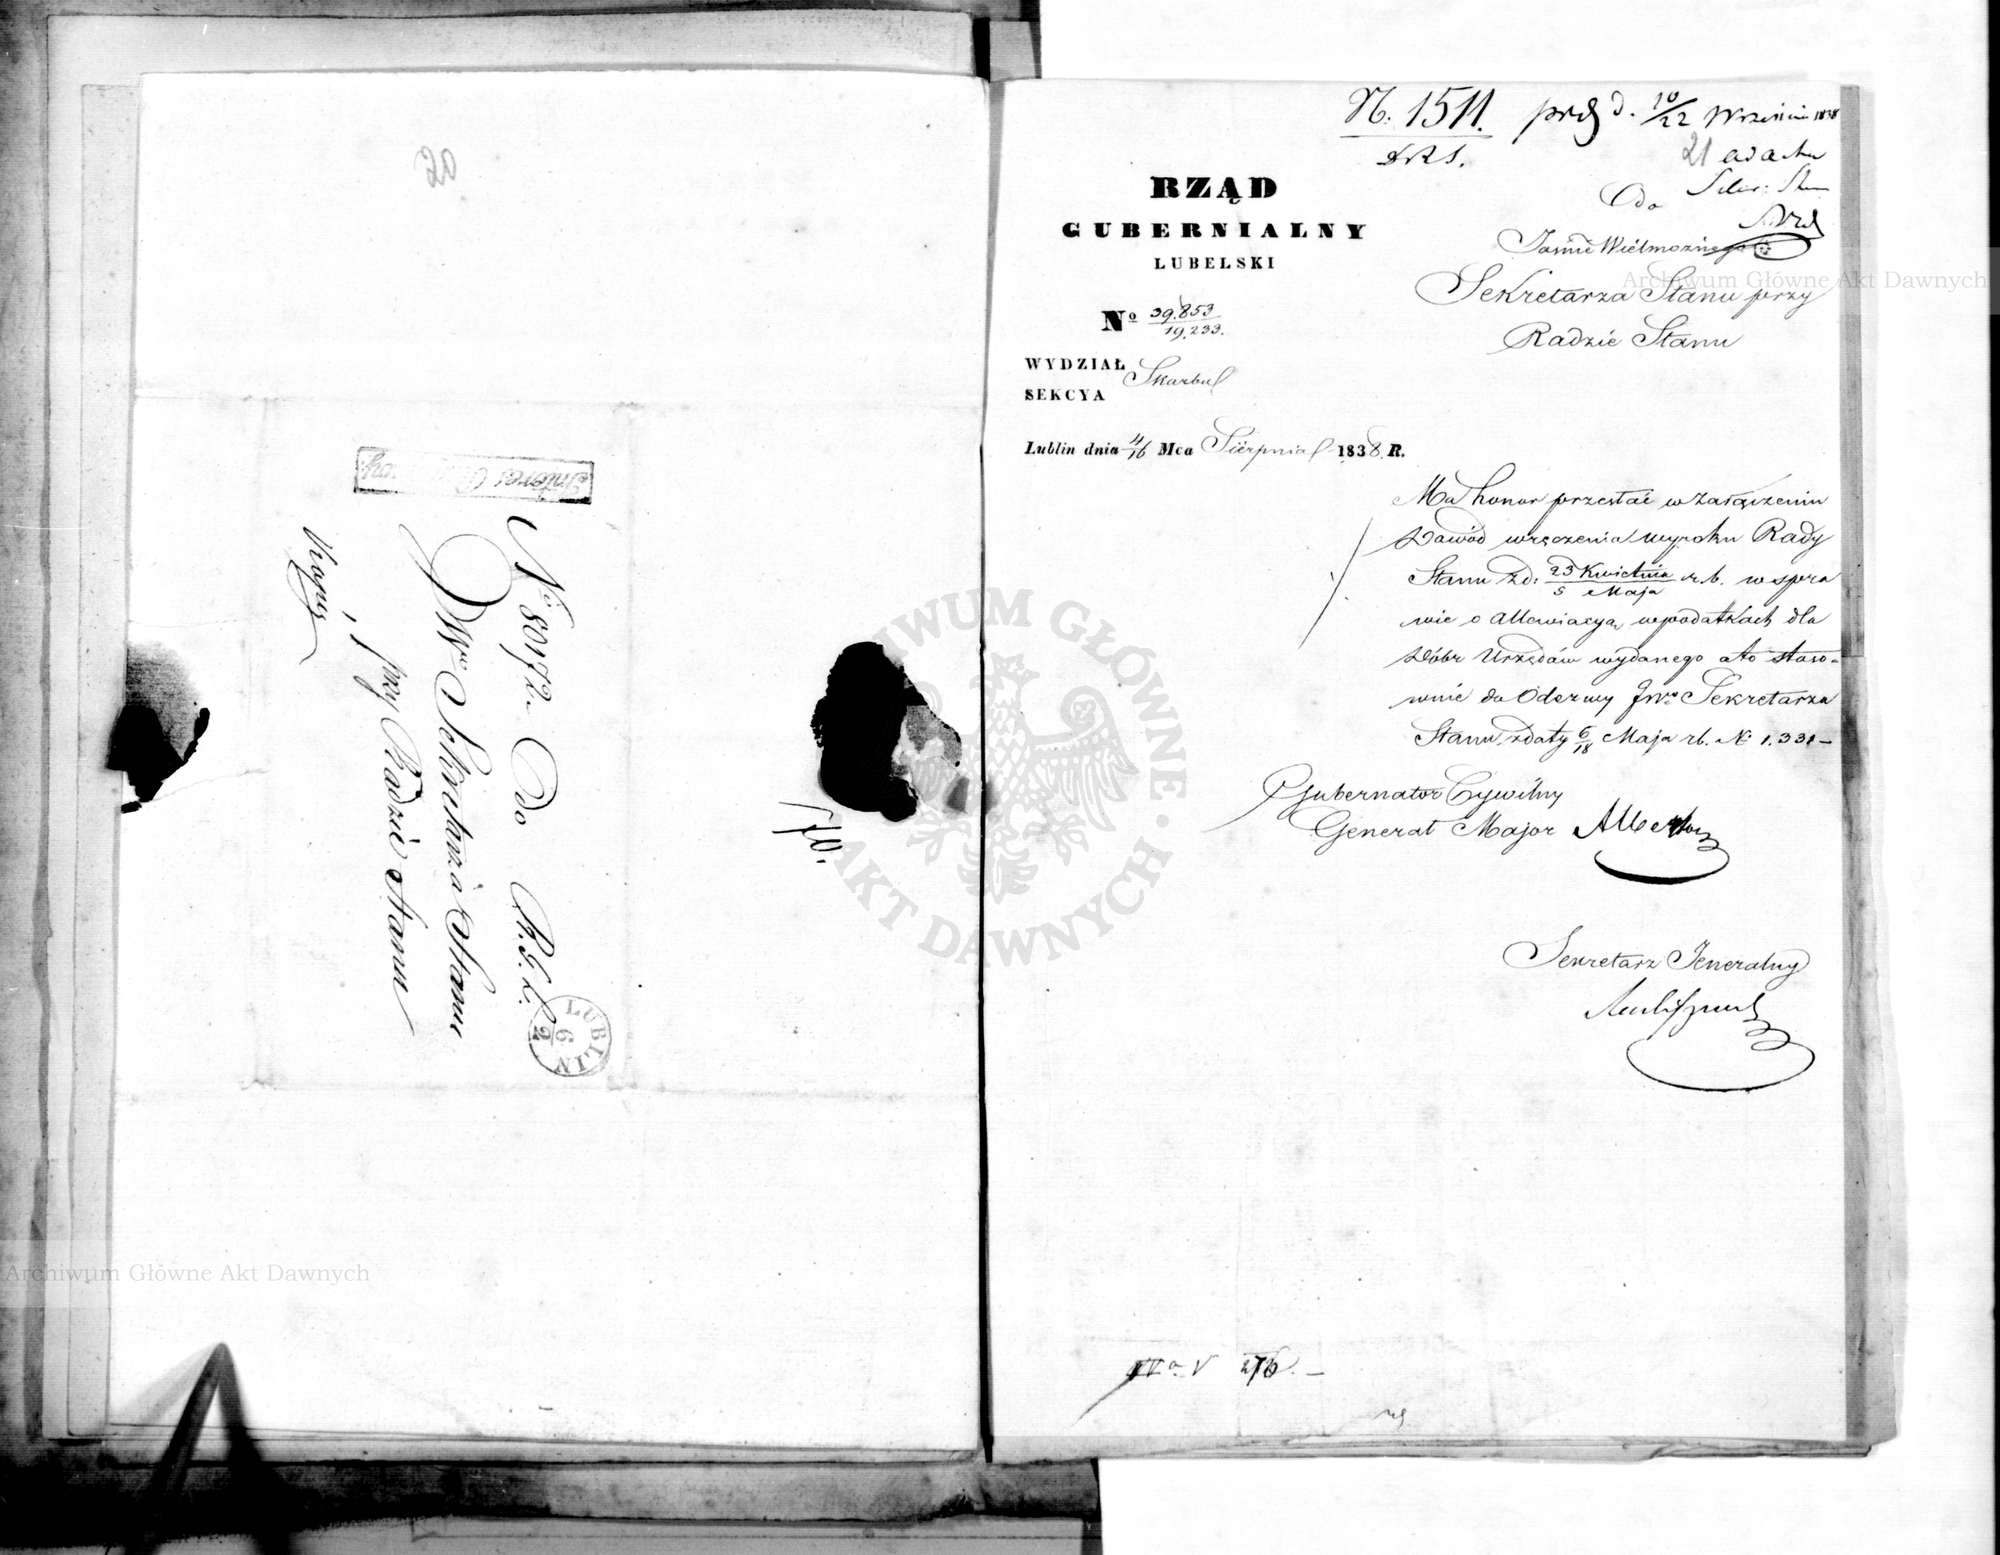 20
Interes
No 80172 Do R. G. L.
JWo Sekretarza Stanu
przy Radzie Stanu
LUBLIN
6
2
N. 1511. d. 10/22 Września 1838
21 ad acta
RZĄD
GUBERNIALNY
LUBELSKI
No 39.853/19.233.
WYDZIAŁ Skarbu
SEKCYA
Lublin dnia 4/16 Mca Sierpnia 1838 R.
Do
Jaśnie Wielmożnego
Sekretarza Stanu przy
Radzie Stanu
Ma honor przesłać w załączeniu
Dowód wręczenia wyroku Rady
Stanu z d: 23 Kwietnia/5 Maja r. b. w spra
wie o allewiacyą w podatkach dla
Dóbr Urzędów wydanego a to stoso-
wnie do Odezwy JWo Sekretarza
Stanu z daty 6/18 Maja rb. N 1.331 –
Gubernator Cywilny
Generał Major Albertow
Sekretarz Jeneralny
ARCHIWUM GŁÓWNE AKT DAWNYCH
Archiwum Główne Akt Dawnych
Archiwum Główne Akt Dawnych